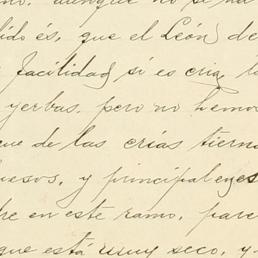 no, aunque no se ha
dido és, que el León de
facilidad si es cria, l
yerbas, pero no hemo
ue de las crías tierna
uesos, y principalmes
re en este ramo, pare
que está muy seco, y